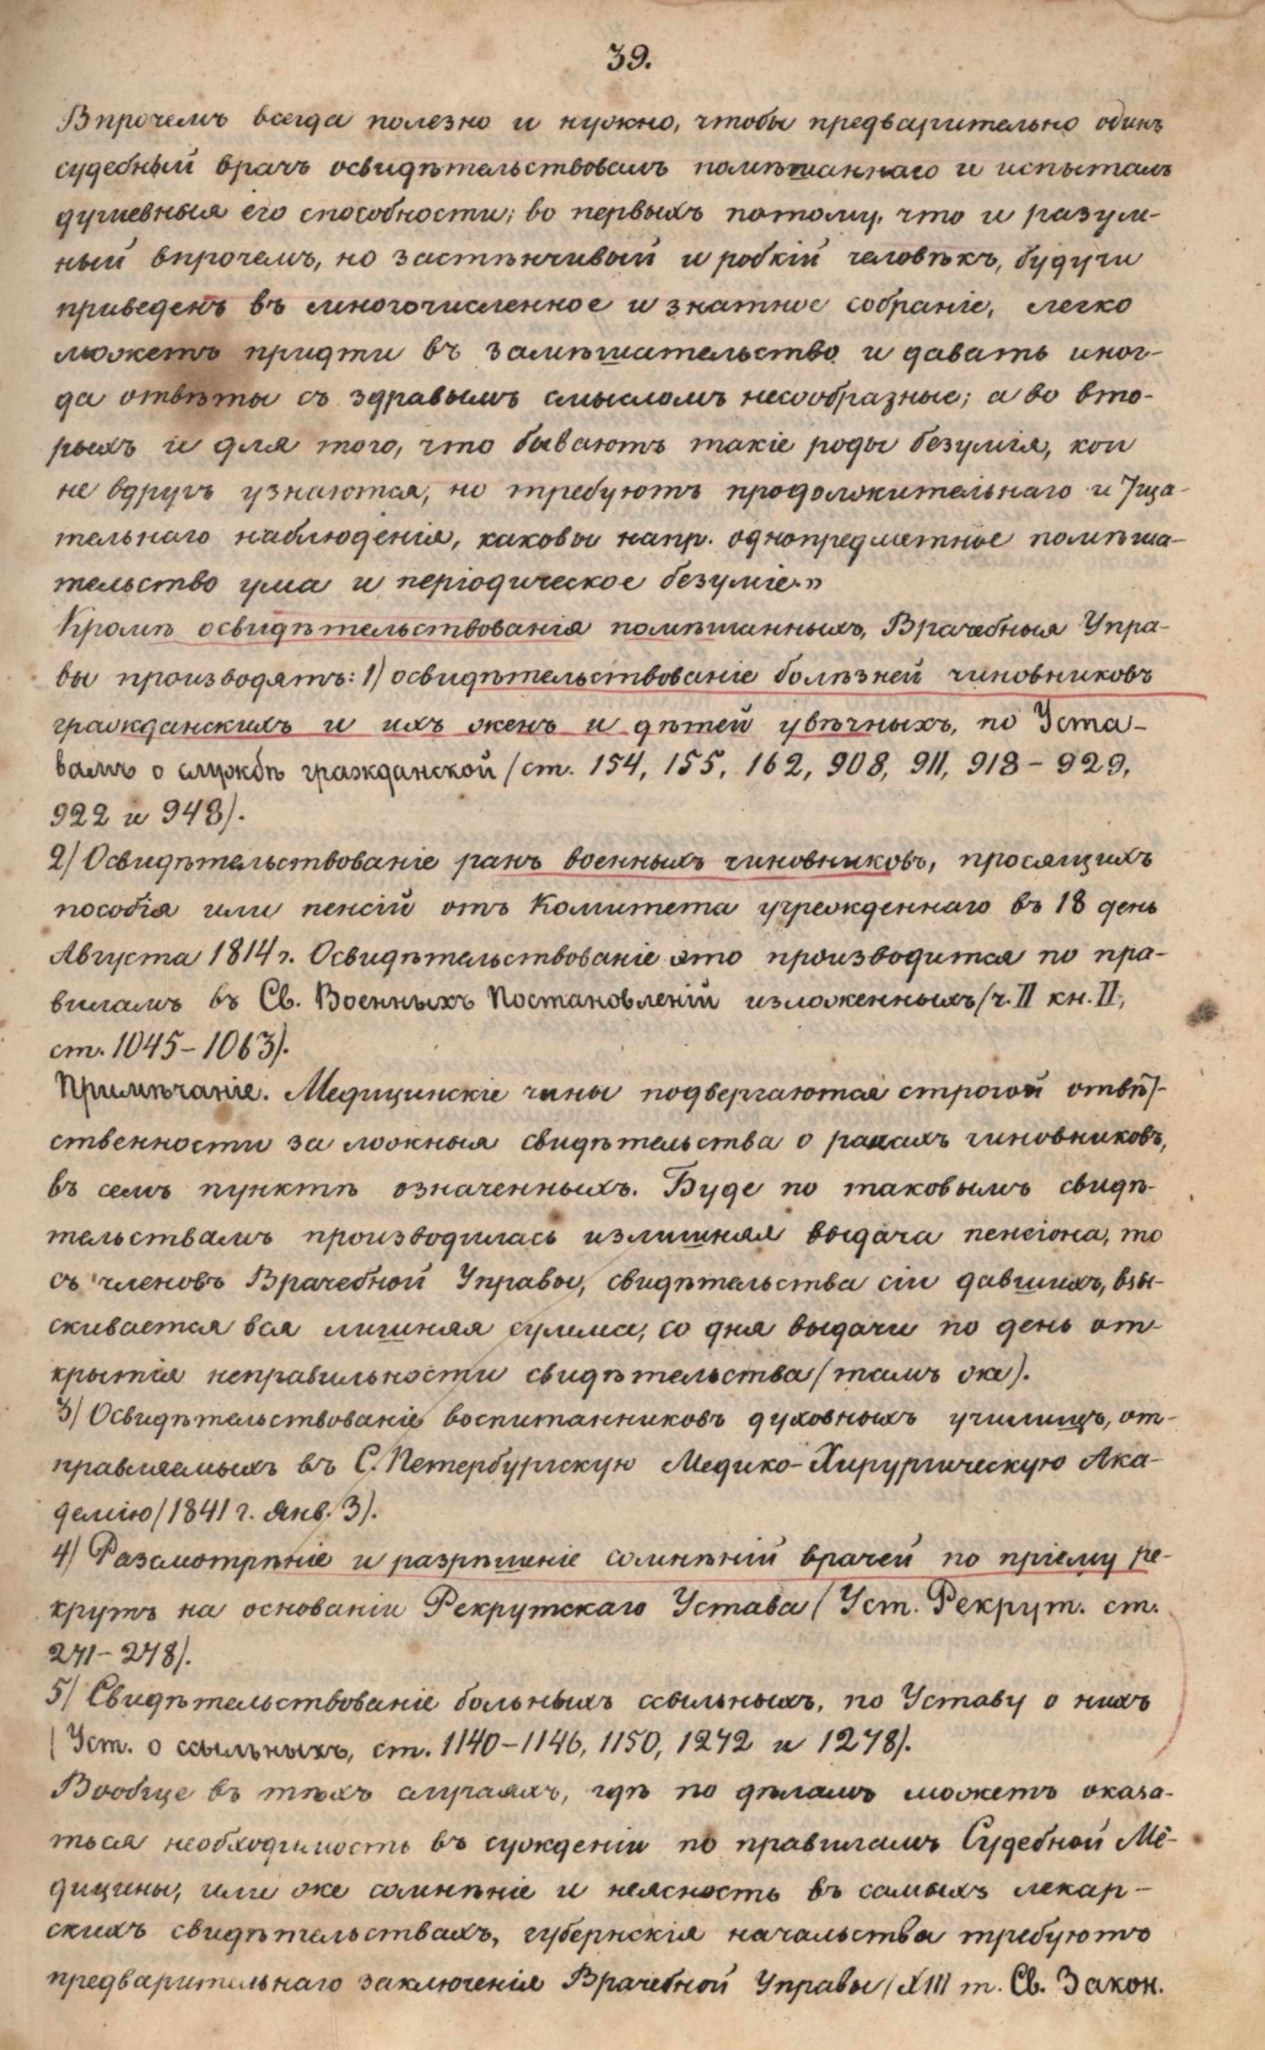 39.
Впрочемъ всегда полезно и нужно, чтобы предварительно одинъ
судебный врачъ освидѣтельствовалъ помѣшаннаго и испыталъ
душевныя его способности; во первыхъ потому, что и разум-
ный впрочемъ, но застѣнчивый и робкій человѣкъ, будучи
приведенъ въ многочисленное и знатное собраніе, легко
можетъ придти въ замѣшательство и давать иног-
да отвѣты съ здравымъ смысломъ несообразные; а во вто-
рыхъ и для того, что бываютъ такіе роды безумія, кои
не вдругъ узнаются, но требуютъ продолжительнаго и тща-
тельнаго наблюденія, каковы напр. однопредметное помѣша-
тельство ума и періодическое безуміе.»
Кромѣ освидѣтельствованія помѣшанныхъ, Врачебныя Упра-
вы производятъ: 1) освидѣтельствованіе болѣзней чиновниковъ
гражданскихъ и ихъ женъ и дѣтей увѣчныхъ, по Уста-
вамъ о службѣ гражданской (ст. 154, 155, 162, 908, 911, 918 - 929,
922 и 948).
2) Освидѣтельствованіе ранъ военныхъ чиновниковъ, просящихъ
пособія или пенсій отъ Комитета учрежденнаго въ 18 день
Августа 1814 г. Освидѣтельствованіе это производится по пра-
виламъ въ Св. Военныхъ Постановленій изложенныхъ (ч. II кн. II,
ст. 1045 - 1063).
Примѣчаніе. Медицинскіе чины подвергаются строгой отвѣт-
ственности за ложныя свидѣтельства о ранахъ чиновниковъ,
въ семъ пунктѣ означенныхъ. Буде по таковымъ свидѣ-
тельствамъ производилась излишняя выдача пенсіона, то
съ членовъ Врачебной Управы, свидѣтельства сіи давшихъ, взы-
скивается вся лишняя сумма, со дня выдачи по день от-
крытія неправильности свидѣтельства (тамъ же).
3) Освидѣтельствованіе воспитанниковъ духовныхъ училищъ, от-
правляемыхъ въ С. Петербургскую Медико-Хирургическую Ака-
демію (1841 г. Янв. 3).
4) Разсмотрѣніе и разрѣшеніе сомнѣній врачей по пріему ре-
крутъ на основаніи Рекрутскаго Устава (Уст. Рекрут. ст.
271 - 278).
5) Свидѣтельствованіе больныхъ ссыльныхъ, по Уставу о нихъ
(Уст. о ссыльныхъ, ст. 1140 - 1146, 1150, 1272 и 1278).
Вообще въ тѣхъ случаяхъ, гдѣ по дѣламъ можетъ оказа-
ться необходимость въ сужденіи по правиламъ Судебной Ме-
дицины, или же сомнѣніе и неясность въ самыхъ лекар-
скихъ свидѣтельствахъ, губернскія начальства требуютъ
предварительнаго заключенія Врачебной Управы (XIII т. Св. Закон.